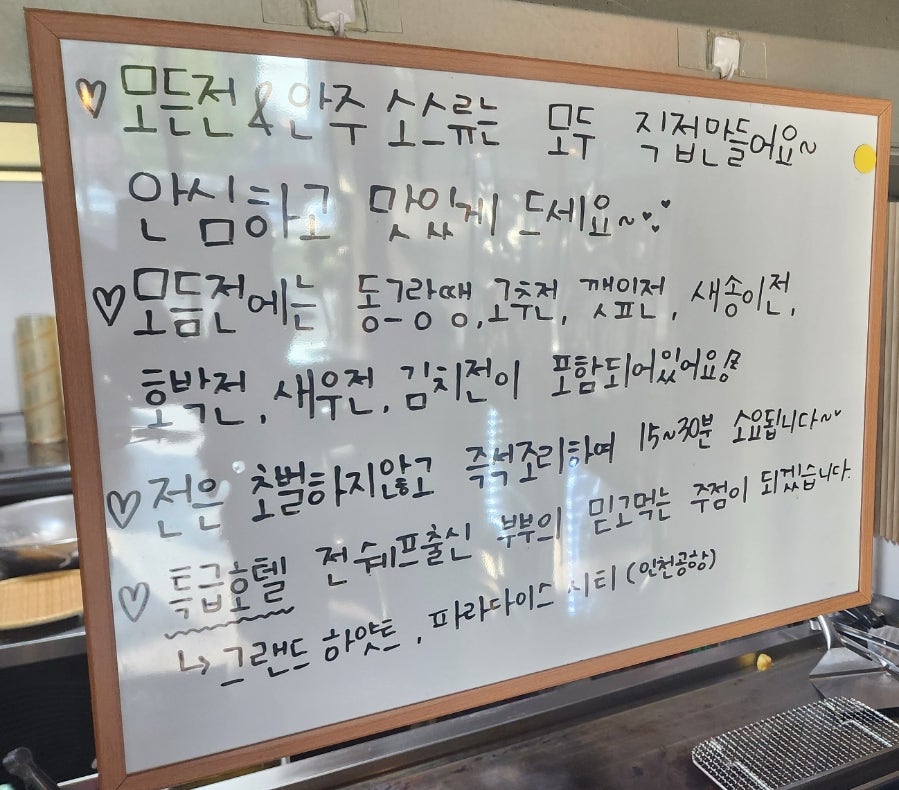 ♡ 모든전 & 안주 소스류는 모두 직접만들어요~
안심하고 맛있게 드세요~
♡ 모듬전에는 동그랑땡, 고추전, 깻잎전, 새송이전,
호박전, 새우전, 김치전이 포함되어있어요
♡ 전은 초벌하지않고 즉석조리하여 15~30분 소요됩니다~
♡ 특급호텔 전 쉐프출신 부부의 믿고먹는 주점이 되겠습니다.
↳ 그랜드 하얏트, 파라다이스 시티 (인천공항)